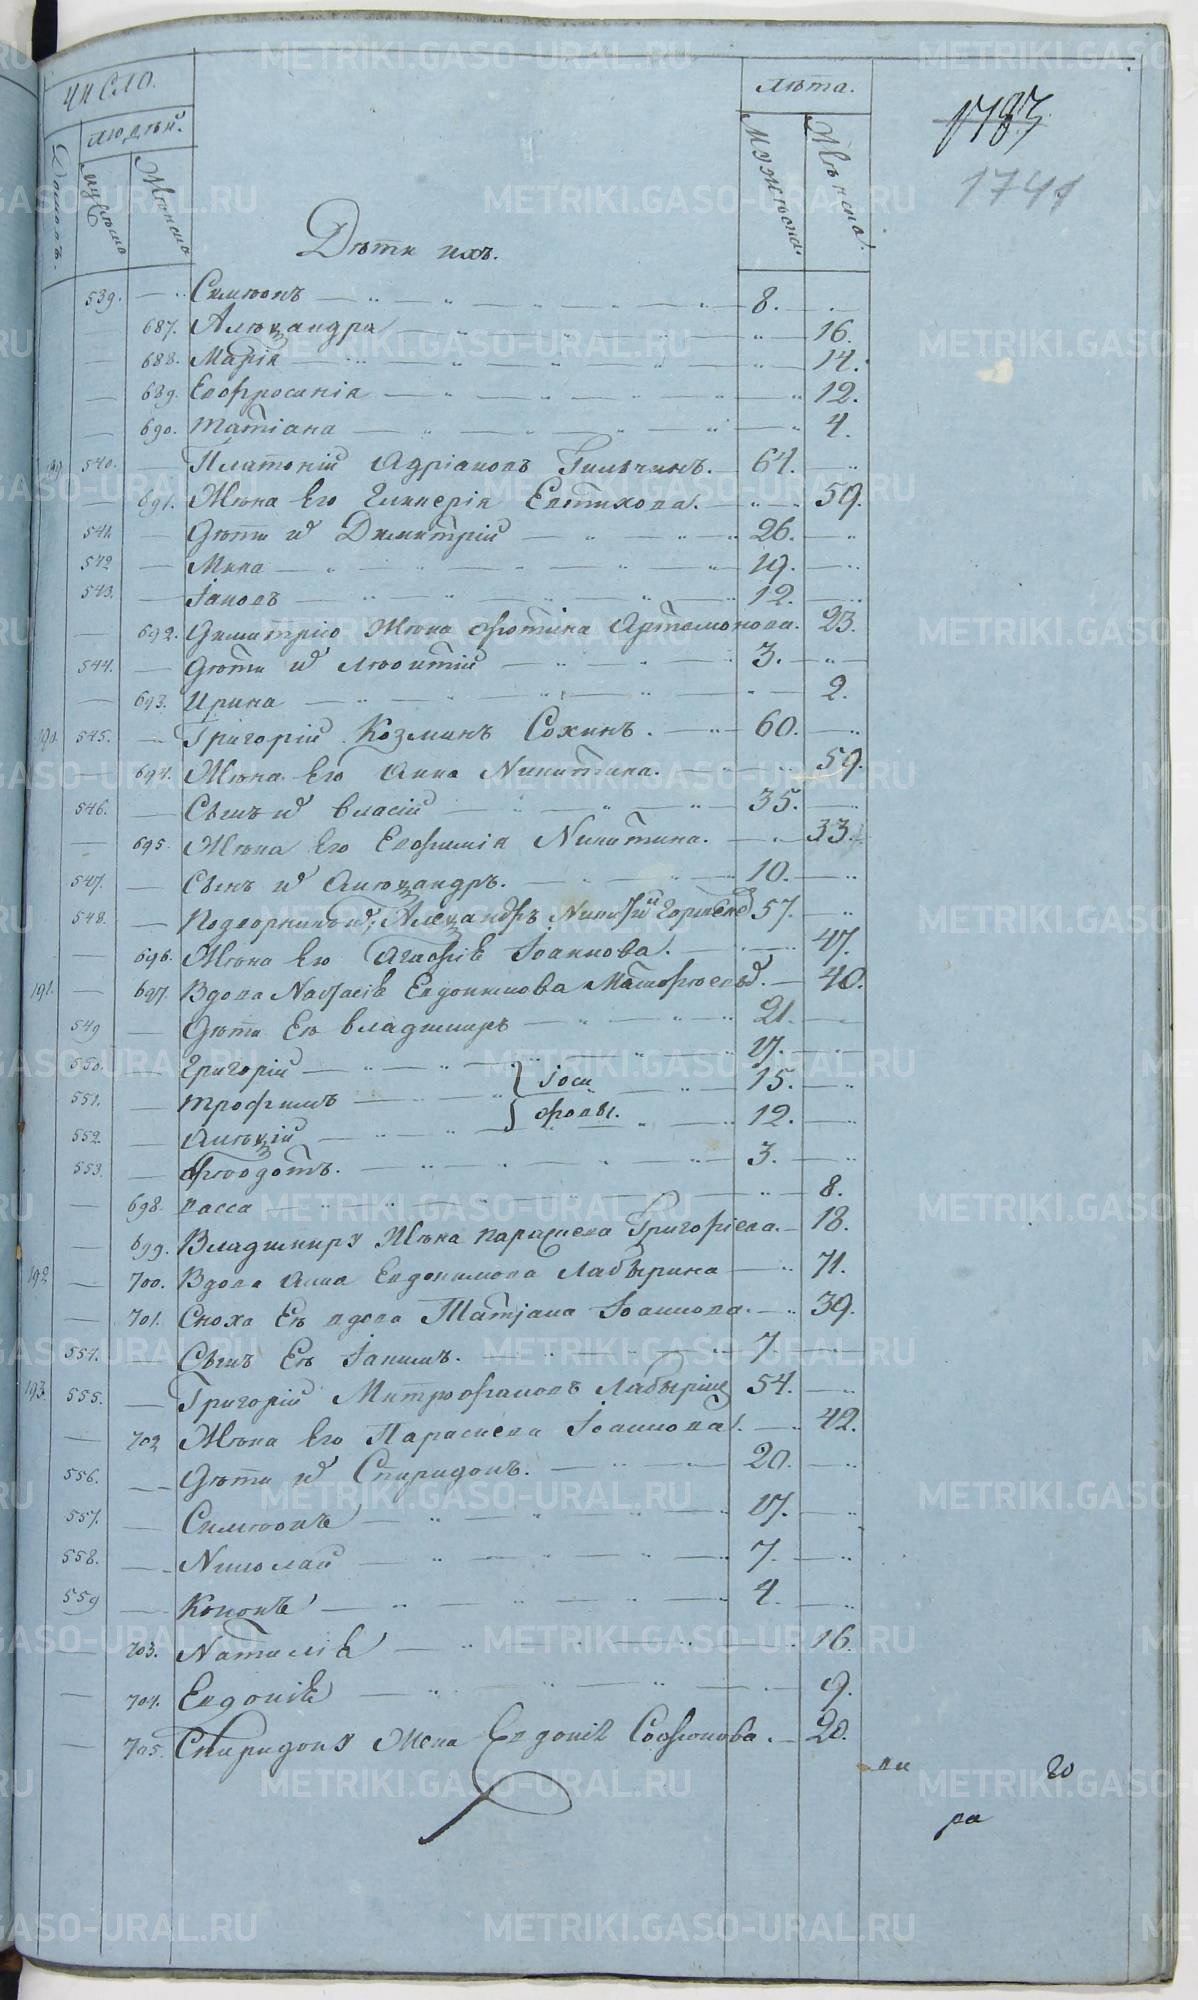 число
людей.
Дворовъ.
мужеска
Женска
Лѣта.
Мужеска.
Женска.
1783
1741
Дѣти ихъ.
539. Симеонъ 8.
687. Александра 16.
688. Марія 14.
689. Евфросинія 12.
690. Татіана 4.
189. 540. Платоній Адріановъ 64.
691. Жена Его Гликерія Евтихова. 59.
541. Дѣти и҆ Димитрій 26.
542 Мина 19.
543. Іаковъ 12.
692. Димитрію Жена Фотина Артамонова. 23.
544. Дѣти и҆ Леонтій 3.
693. Ирина 2.
190. 545. Григорій Козминъ Сохинъ. 60.
694. Жена Его Анна Никитина. 59.
546. Сынъ и҆ Власій 35.
695. Жена Его Евфимія Никитина. 33.
547. Сынъ и҆ Александръ. 10.
548. Подворникъ и҆, Александръ 57.
696. Жена Его Агафіѣ Іоаннова. 47.
191. 697. Вдова Настасіѣ Евдокимова 40.
549 Дѣти Ея Владимиръ 21.
550. Григорій 17.
551. Трофимъ Іоси 15.
552. Алексій фовы. 12.
553. Феодотъ. 3.
698. Васса 8.
699. Владимиру Жена Параскева Григоріева. 18.
192 700. Вдова Анна Евдокимова Лабырина 71.
701. Сноха Ея вдова Татіана Іоаннова. 39.
554. Сынъ Ея Іакимъ. 7.
193. 555. Григорій Митрофановъ Лабыринъ 54.
702 Жена Его Параскева Іоаннова. 42.
556. Дѣти и҆ Спиридонъ. 20.
557. Симеонъ 17.
558. Николай 7.
559 Кононъ 4.
703. Наталіѣ 16.
704. Евдокіѣ 9.
705. Спиридону Жена Евдокіѣ Софронова. 20.
го
ра
METRIKI.GASO-URAL.RU